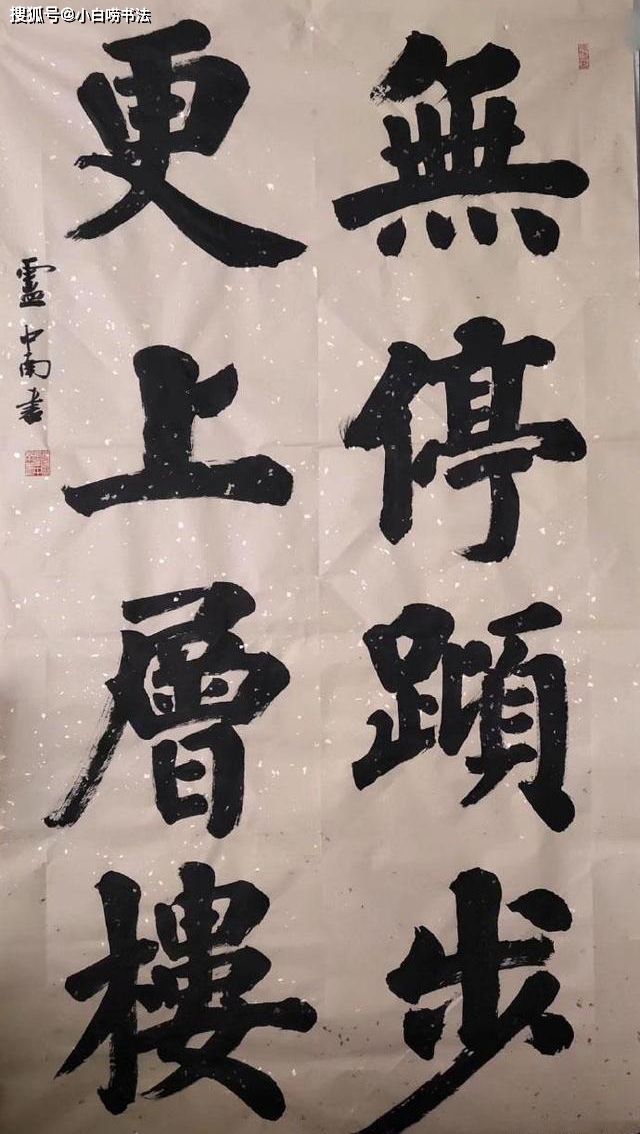 搜狐号@小白唠书法
無停蹞步
更上層樓
中南書